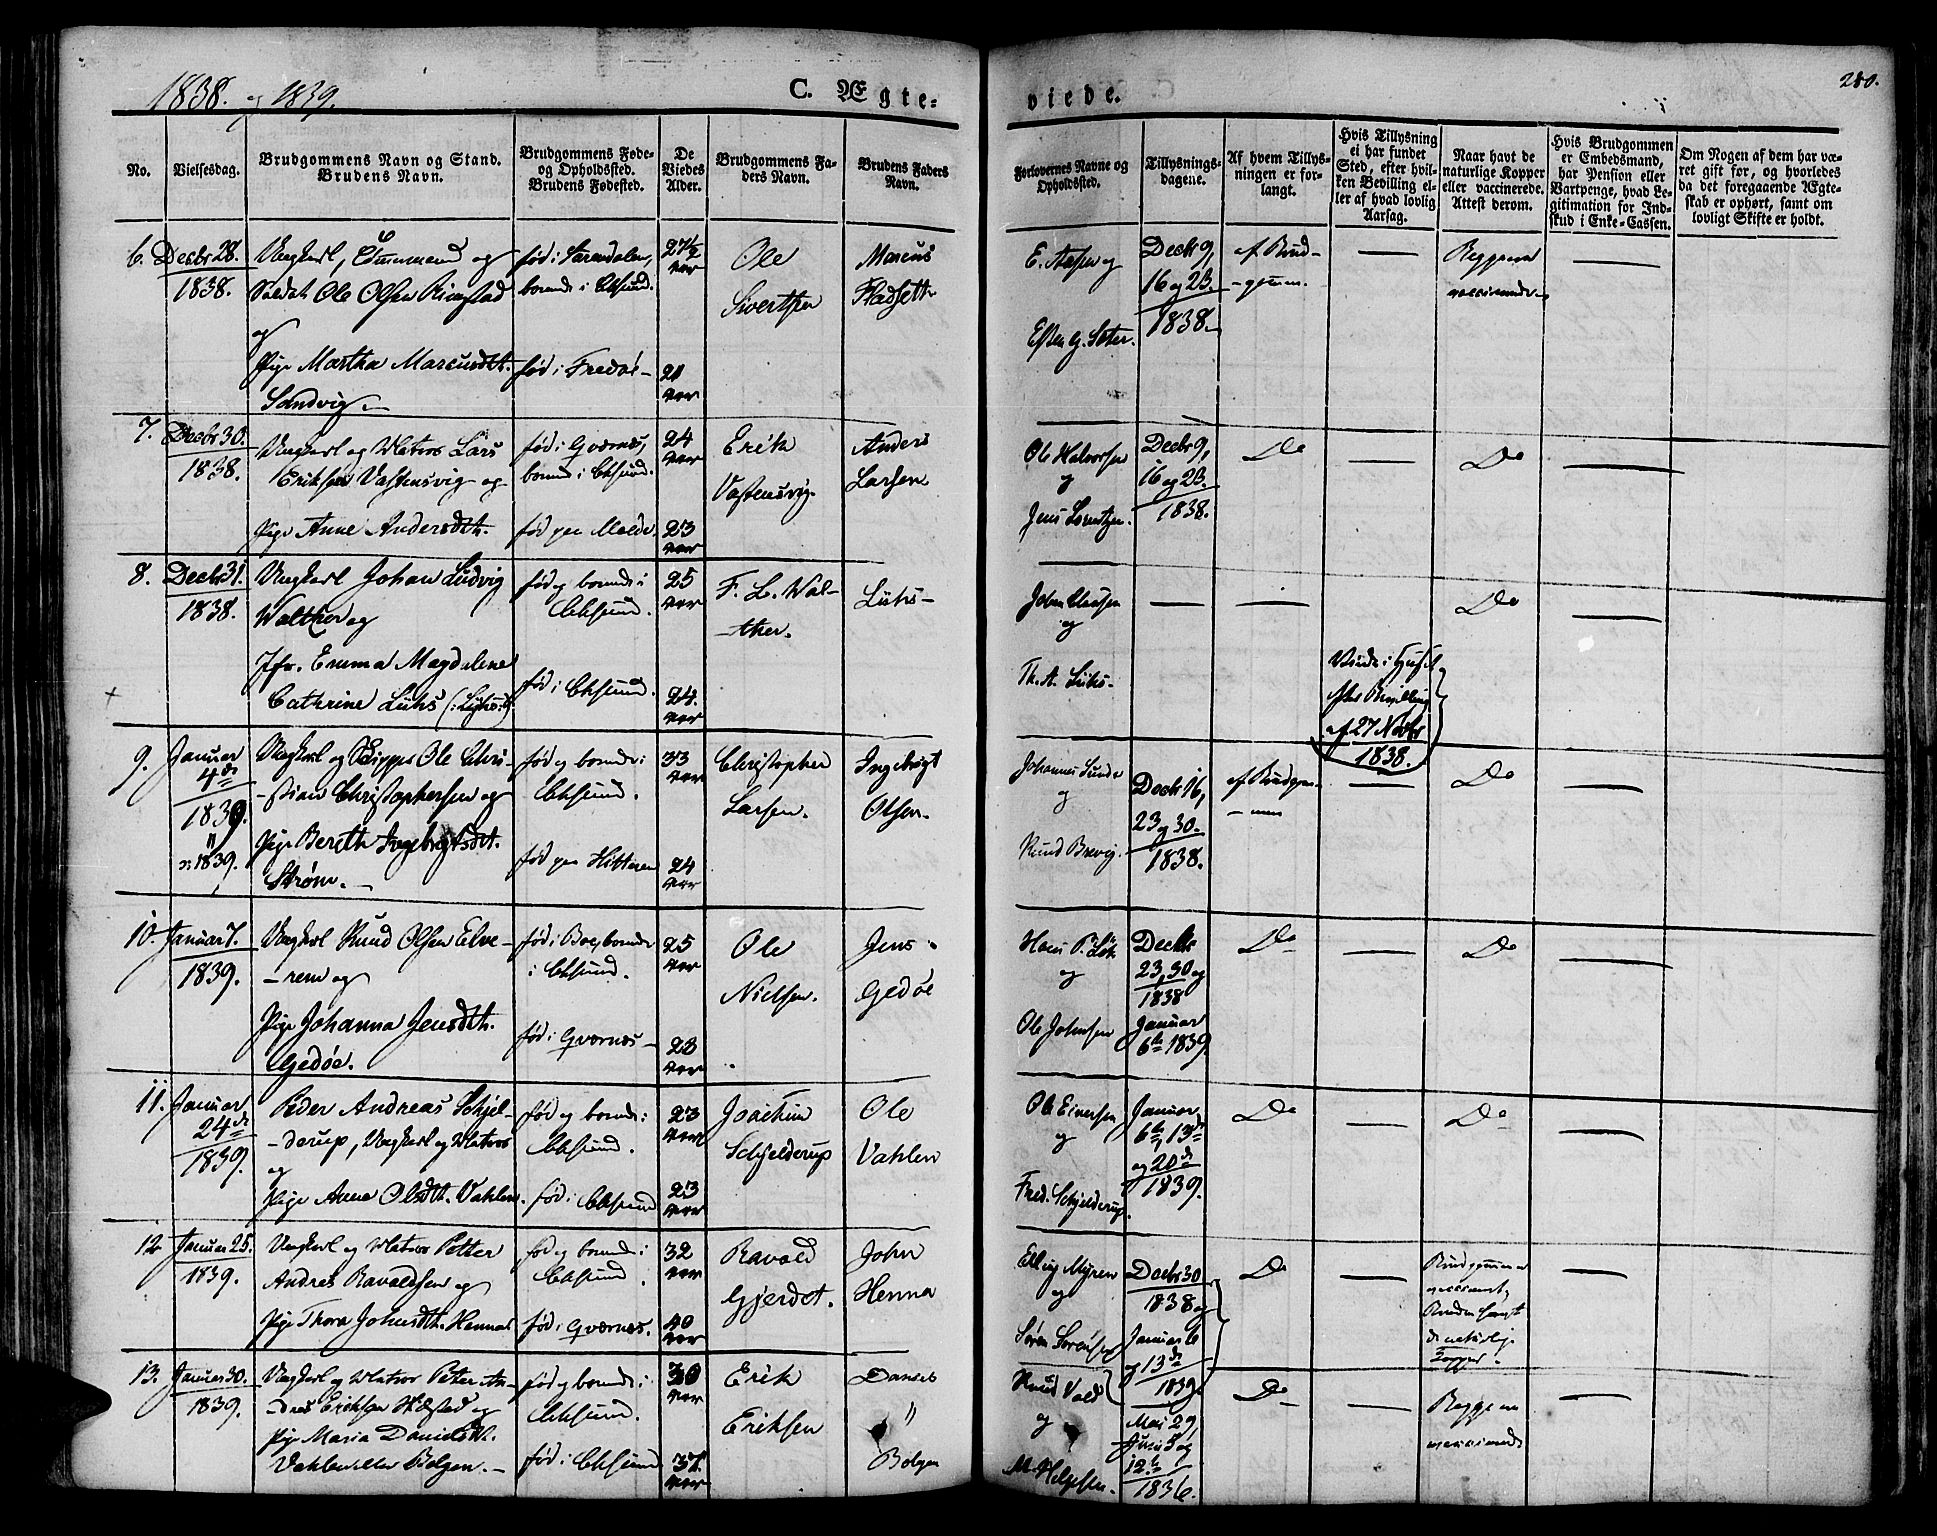 1838. og 1839.
C. Ægte-
viede.
280.
No.
Vielsesdag.
Brudgommens Navn og Stand.
Brudens Navn.
Brudgommens Føde-
og Opholdssted.
Brudens Fødested.
De
Viedes
Alder.
Brudgommens Fa-
ders Navn.
Brudens Faders
Navn.
Forlovernes Navne og
Opholdssted.
Tillysnings-
dagene.
Af hvem Tillys-
ningen er for-
langt.
Hvis Tillysning
ei har fundet
Sted, efter hvil-
ken Bevilling el-
ler af hvad lovlig
Aarsag.
Naar havt de
naturlige Kopper
eller vaccinerede.
Attest derom.
Hvis Brudgommen
er Embedsmand,
har Pension eller
Vartpenge, hvad Le-
gitimation for Ind-
skud i Enke-Cassen.
Om Nogen af dem har væ-
ret gift før, og hvorledes
da det foregaaende Ægte-
skab er ophørt, samt om
lovligt Skifte er holdt.
6. Decbr 28.
1838.
Ungkarl, Tømmermand og
Soldat Ole Olsen Rimstad
og
Pige Martha Marcusdtr.
Sandvig
født i Surendalen,
boende i Chrsund.
født i Fredøe
27½
Aar
21
Aar
Ole
Sivertsen
Marcus
Fladseth
E. Aasen og
Esten G. Sæter.
Decbr 9,
16 og 23.
1838.
af Brud-
gommen.
Begge ere
vaccinerede
7. Decbr 30.
1838.
Ungkarl og Matros Lars
Eriksen Vaftensvig og
Pige Anne Andersdtr.
født i Qværnes,
boende i Chrsund.
født paa Molde.
24
Aar
23
Aar
Erik
Vaftensvig.
Anders
Larsen
Ole Halvorsen
og
Jens Lorentzen.
Decbr 9,
16 og 23.
1838.
Do
Do
8. Decbr 31.
1838.
Ungkarl Johan Ludvig
Walther og
Jfr. Emma Magdalene
Cathrine Lühs
født og boende i
Chrsund.
født i Chrsund.
25
Aar
24.
Aar
F. L. Wal-
ther.
Lühs
John Clausen
og
Th. A. Lühs.
Viede i Huset
efter Bevilling
af 27 Novbr
1838.
Do
9. Januar
4de
1839.
1839.
Ungkarl og Skipper Ole Chri-
stian Christophersen og
Pige Berith Ingebrigtsdtr.
Strøm.
født og boende i
Chrsund.
født paa Hitteren
33
Aar
24
Aar
Christopher
Larsen.
Ingebrigt
Olsen.
Johannes Sunde
og
Knud Brevig.
Decbr 16,
23 og 30.
1838.
af Brudgom-
men
Do
10. Januar 7.
1839.
Ungkarl Knud Olsen Elve-
rem og
Pige Johanna Jensdtr.
Gedøe.
født i Boe, boende
i Chrsund.
født i Qværnes
25
Aar
23
Aar
Ole
Nielsen.
Jens
Gedøe
Hans P. Løk
og
Ole Johnsen
Decbr
23, 30 og
1838
Januar
6te 1839.
Do
Do
11. Januar
24de
1839.
Peder Andreas Schjel-
derup, Ungkarl og Matros
og
Pige Anne Olsdtr. Vahlen.
født og boende i
Chrsund.
født i Chrsund
23
Aar
23
Aar
Joachim
Schjelderup
Ole
Vahlen
Ole Einersen
og
Fred. Schjelderup.
Januar
6te, 13de
og 20de
1839.
Do
Do
12 Januar 25.
1839.
Ungkarl og Matros Petter
Andreas Ravaldsen og
Pige Thora Johnsdtr. Hennæ
født og boende i
Chrsund.
født i Qværnes.
32
Aar
40
Aar
Ravald
Gjerdet.
John
Henna
Elling Myren
og
Søren Sørensen
Decbr 30
1838 og
Januar 6
og 13de
1839.
Do
Brudgommen
vaccineret,
Bruden havt
de naturlige
Kopper.
13. Januar 30.
1839.
Ungkarl og Matros Peter An-
dreas Eriksen Hestad og
Pige Maria Danielsdtr.
Vahlen eller Bolgen.
født og boende i
Chrsund.
født i Chrsund
30
Aar
37.
Aar
Erik
Eriksen
Daniel
Bolgen
Knud Vold
og
M. Helgesen.
Mai 29,
Juni 5 og
12te
1836.
Do
Begge ere
vaccinerede